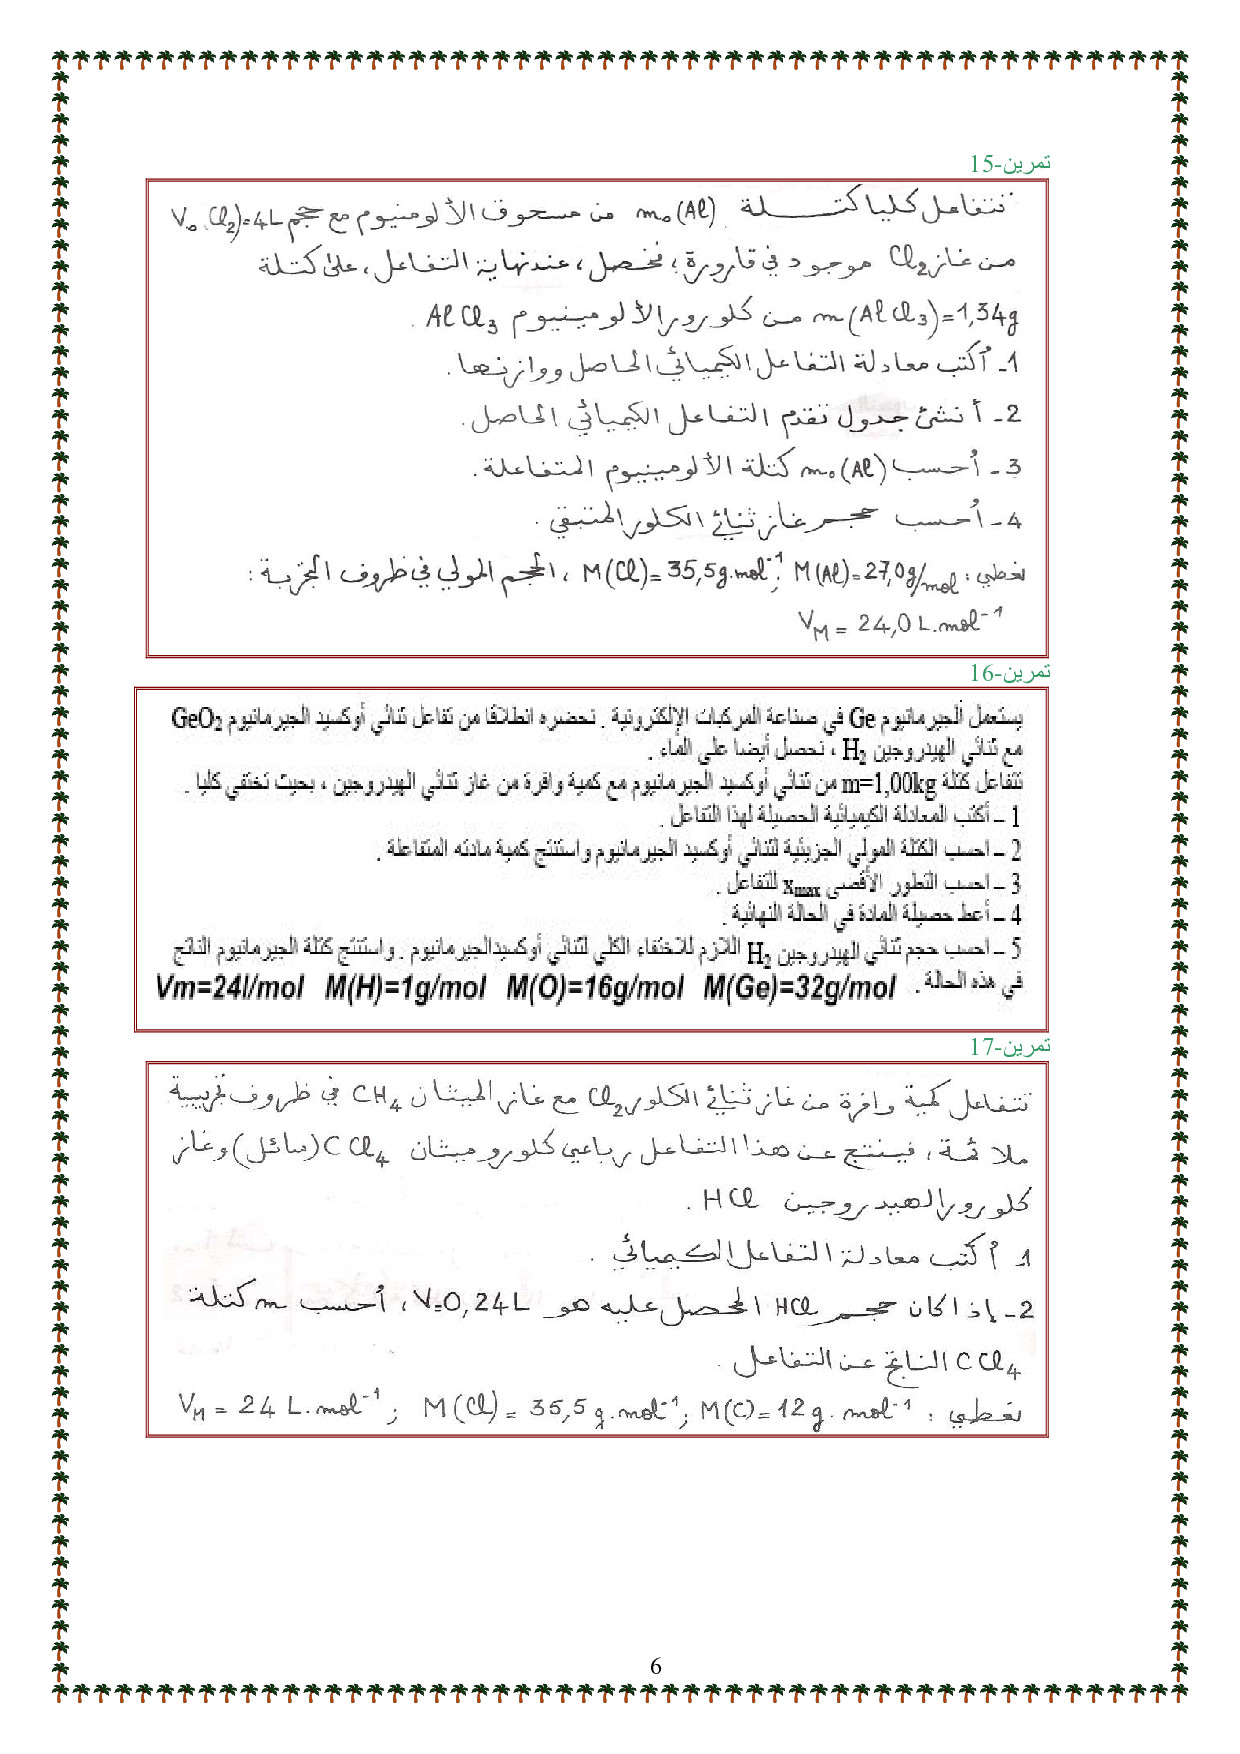 تمرين-15
تتفاعل كليا كتلة m₀(Al) من مسحوق الألومنيوم مع حجم V₀(Cl₂)=4L
من غاز Cl₂ موجود في قارورة، فحصل، عند نهاية التفاعل، على كتلة
m(AlCl₃)=1,34g من كلورور الألومينيوم AlCl₃ .
1- أكتب معادلة التفاعل الكيميائي الحاصل ووازنها .
2- أنشئ جدول تقدم التفاعل الكيميائي الحاصل .
3- أحسب m₀(Al) كتلة الألومينيوم المتفاعلة .
4- أحسب حجم غاز ثنائي الكلور المتبقي .
نعطي : M(Al)=27,0g/mol ; M(Cl)=35,5g.mol⁻¹ ، الحجم المولي في ظروف التجربة :
V_M = 24,0 L.mol⁻¹
تمرين-16
يستعمل الجيرمانيوم Ge في صناعة المركبات الإلكترونية . نحضره انطلاقا من تفاعل ثنائي أوكسيد الجيرمانيوم GeO₂
مع ثنائي الهيدروجين H₂ ، نحصل أيضا على الماء .
تتفاعل كتلة m=1,00kg من ثنائي أوكسيد الجيرمانيوم مع كمية وافرة من غاز ثنائي الهيدروجين ، بحيث تختفي كليا .
1 – أكتب المعادلة الكيميائية الحصيلة لهذا التفاعل .
2 – احسب الكتلة المولي الجزيئية لثنائي أوكسيد الجيرمانيوم واستنتج كمية مادته المتفاعلة .
3 – احسب التطور الأقصى xmax للتفاعل .
4 – أعط حصيلة المادة في الحالة النهائية .
5 – احسب حجم ثنائي الهيدروجين H₂ اللازم للاختفاء الكلي لثنائي أوكسيدالجيرمانيوم . واستنتج كتلة الجيرمانيوم الناتج
في هذه الحالة . Vm=24l/mol M(H)=1g/mol M(O)=16g/mol M(Ge)=32g/mol
تمرين-17
تتفاعل كمية وافرة من غاز ثنائي الكلور Cl₂ مع غاز الميثان CH₄ في ظروف تجريبية
ملائمة ، فينتج عن هذا التفاعل رباعي كلوروميثان CCl₄ (سائل) وغاز
كلورور الهيدروجين HCl .
1 أكتب معادلة التفاعل الكيميائي .
2- إذا كان حجم HCl المحصل عليه هو V=0,24L ، أحسب m كتلة
CCl₄ الناتج عن التفاعل .
نعطي : V_M = 24 L.mol⁻¹ ; M(Cl)= 35,5 g.mol⁻¹ ; M(C)=12 g.mol⁻¹
6